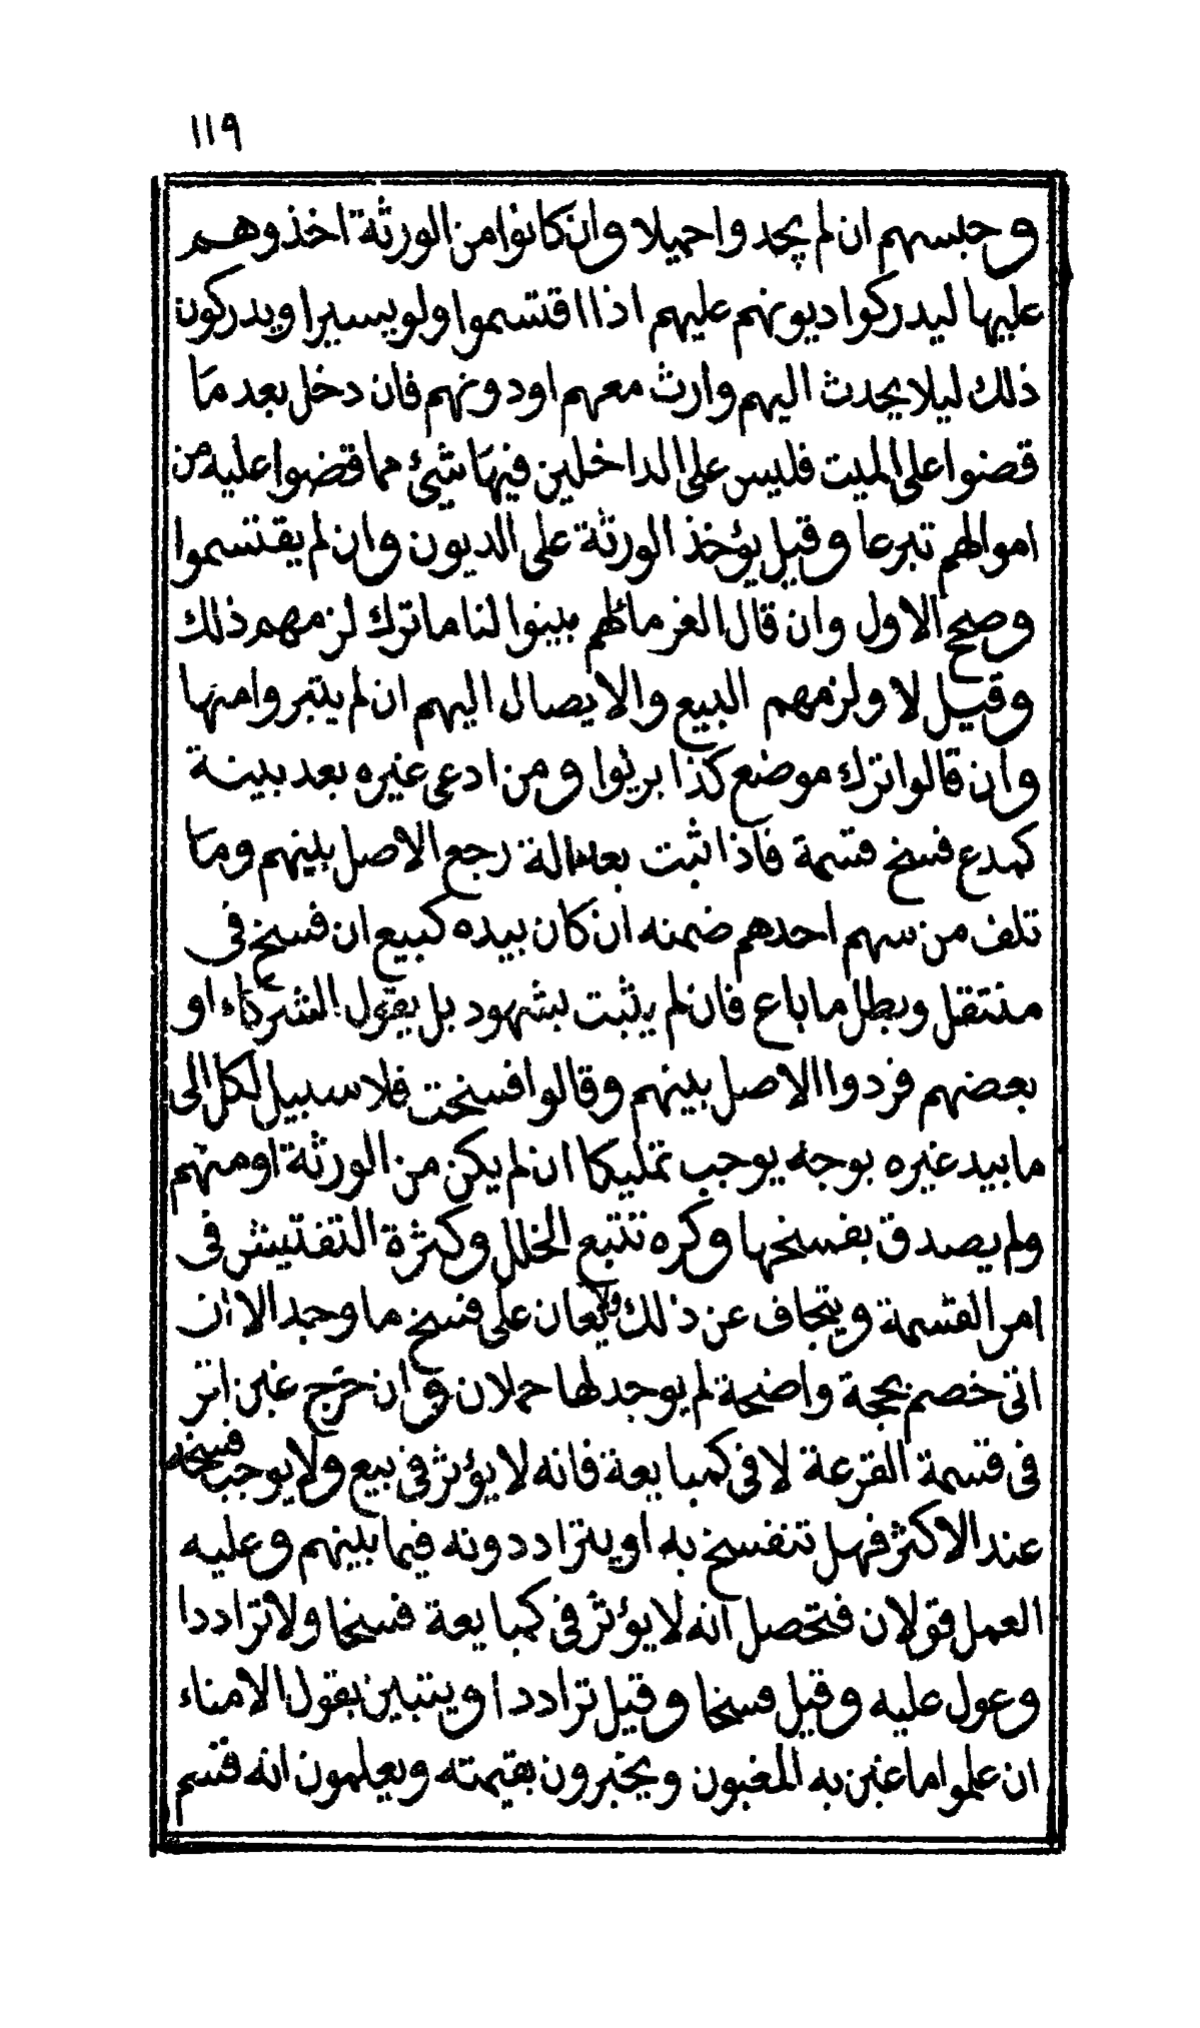 ١١٩
وحبسهم ان لم يجدوا حميلا وان كانوا من الورثة اخذوهم
عليها ليدركوا ديونهم عليهم اذا اقتسموا ولو يسيرا ويدركون
ذلك ليلا يحدث اليهم وارث معهم اودونهم فان دخل بعد ما
قضوا على الميت فليس على الداخلين فيها شيئ مما قضوا عليه من
اموالهم تبرعا وقيل يؤخذ الورثة على الديون وان لم يقتسموا
وصحح الاول وان قال الغرماء لهم بينوا لنا ما ترك لزمهم ذلك
وقيل لا ولزمهم البيع والايصال اليهم ان لم يتبروا منها
وان قالوا ترك موضع كذا بريوا ومن ادعى غيره بعد بينة
كمدع فسخ قسمة فاذا ثبت بعدالة رجع الاصل بينهم وما
تلف من سهم احدهم ضمنه ان كان بيده كبيع ان فسخ في
منتقل وبطل ما باع فان لم يثبت بشهود بل بقول الشركاء او
بعضهم فردوا الاصل بينهم وقالوا فسخت فلا سبيل لكل الى
ما بيد غيره بوجه يوجب تمليكا ان لم يكن من الورثة او منهم
ولم يصدق بفسخها وكره تتبع الخلل وكثرة التفتيش في
امر القسمة ويتجاف عن ذلك ولا يعان على فسخ ما وجد الا ان
اتى خصم بحجة واضحة لم يوجد لها حملان وان خرج غبن اثر
في قسمة القرعة لا في كمبايعة فانه لا يؤثر في بيع ولا يوجب فسخه
عند الاكثر فهل تنفسخ به او يترادونه فيما بينهم وعليه
العمل قولان فتحصل انه لا يؤثر في كمبايعة فسخا ولا ترادد ا
وعول عليه وقيل فسخا وقيل ترادد ا ويتبين بقول الامناء
ان علموا ما غبن به المغبون ويخبرون بقيمته ويعلمون انه قسم